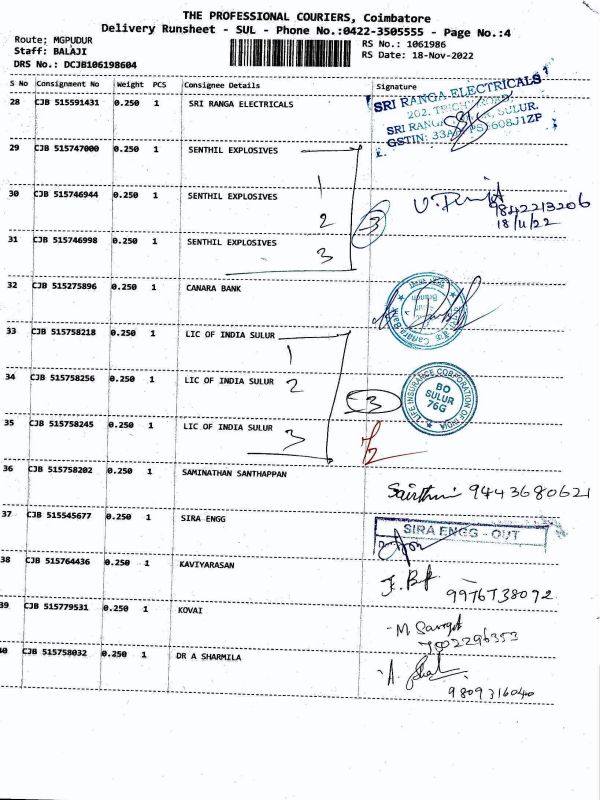 THE PROFESSIONAL COURIERS, Coimbatore
Delivery Runsheet - SUL - Phone No.:0422-3505555 - Page No.:4
Route: MGPUDUR
Staff: BALAJI
DRS No.: DCJB106198604
RS No.: 1061986
RS Date: 18-Nov-2022
S No Consignment No Weight PCS Consignee Details Signature
28 CJB 515591431 0.250 1 SRI RANGA ELECTRICALS
SRI RANGA ELECTRICALS
202, TRICHY ROAD,
SRI RANGA SULUR.
GSTIN: 33A
29 CJB 515747000 0.250 1 SENTHIL EXPLOSIVES
1
30 CJB 515746944 0.250 1 SENTHIL EXPLOSIVES
2
3
9842213206
18/11/22
31 CJB 515746998 0.250 1 SENTHIL EXPLOSIVES
3
32 CJB 515275896 0.250 1 CANARA BANK
Canara Bank
33 CJB 515758218 0.250 1 LIC OF INDIA SULUR
1
34 CJB 515758256 0.250 1 LIC OF INDIA SULUR 2
3
LIFE INSURANCE CORPORATION OF INDIA
BO
SULUR
76G
35 CJB 515758245 0.250 1 LIC OF INDIA SULUR 3
36 CJB 515758202 0.250 1 SAMINATHAN SANTHAPPAN
9443680621
37 CJB 515545677 0.250 1 SIRA ENGG
SIRA ENGG - OUT
38 CJB 515764436 0.250 1 KAVIYARASAN
9976738072
39 CJB 515779531 0.250 1 KOVAI
40 CJB 515758032 0.250 1 DR A SHARMILA
9809316040